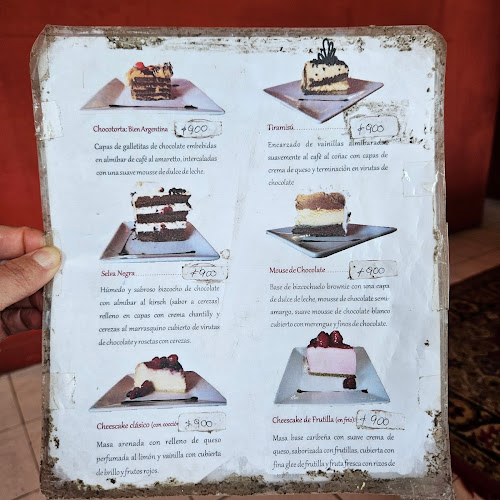 Chocotorta: Bien Argentina $900
Capas de galletitas de chocolate embebidas
en almíbar de café al amaretto, intercaladas
con una suave mousse de dulce de leche.
Tiramisú $900
Encarzado de vainillas almibaradas
suavemente al café al coñac con capas de
crema de queso y terminación en virutas de
chocolate
Selva Negra $900
Húmedo y sabroso bizcocho de chocolate
con almíbar al kirsch (sabor a cerezas)
relleno en capas con crema chantilly y
cerezas al marrasquino cubierto de virutas
de chocolate y rosetas con cerezas.
Mouse de Chocolate $900
Base de bizcochuelo brownie con una capa
de dulce de leche, mousse de chocolate semi-
amargo, suave mousse de chocolate blanco
cubierto con merengue y finos de chocolate.
Cheescake clásico (con cocción) $900
Masa arenada con relleno de queso
perfumada al limón y vainilla con cubierta
de brillo y frutos rojos.
Cheescake de Frutilla (en frío) $900
Masa base carileña con suave crema de
queso, saborizada con frutillas, cubierta con
fina glee de frutilla y fruta fresca con rizos de